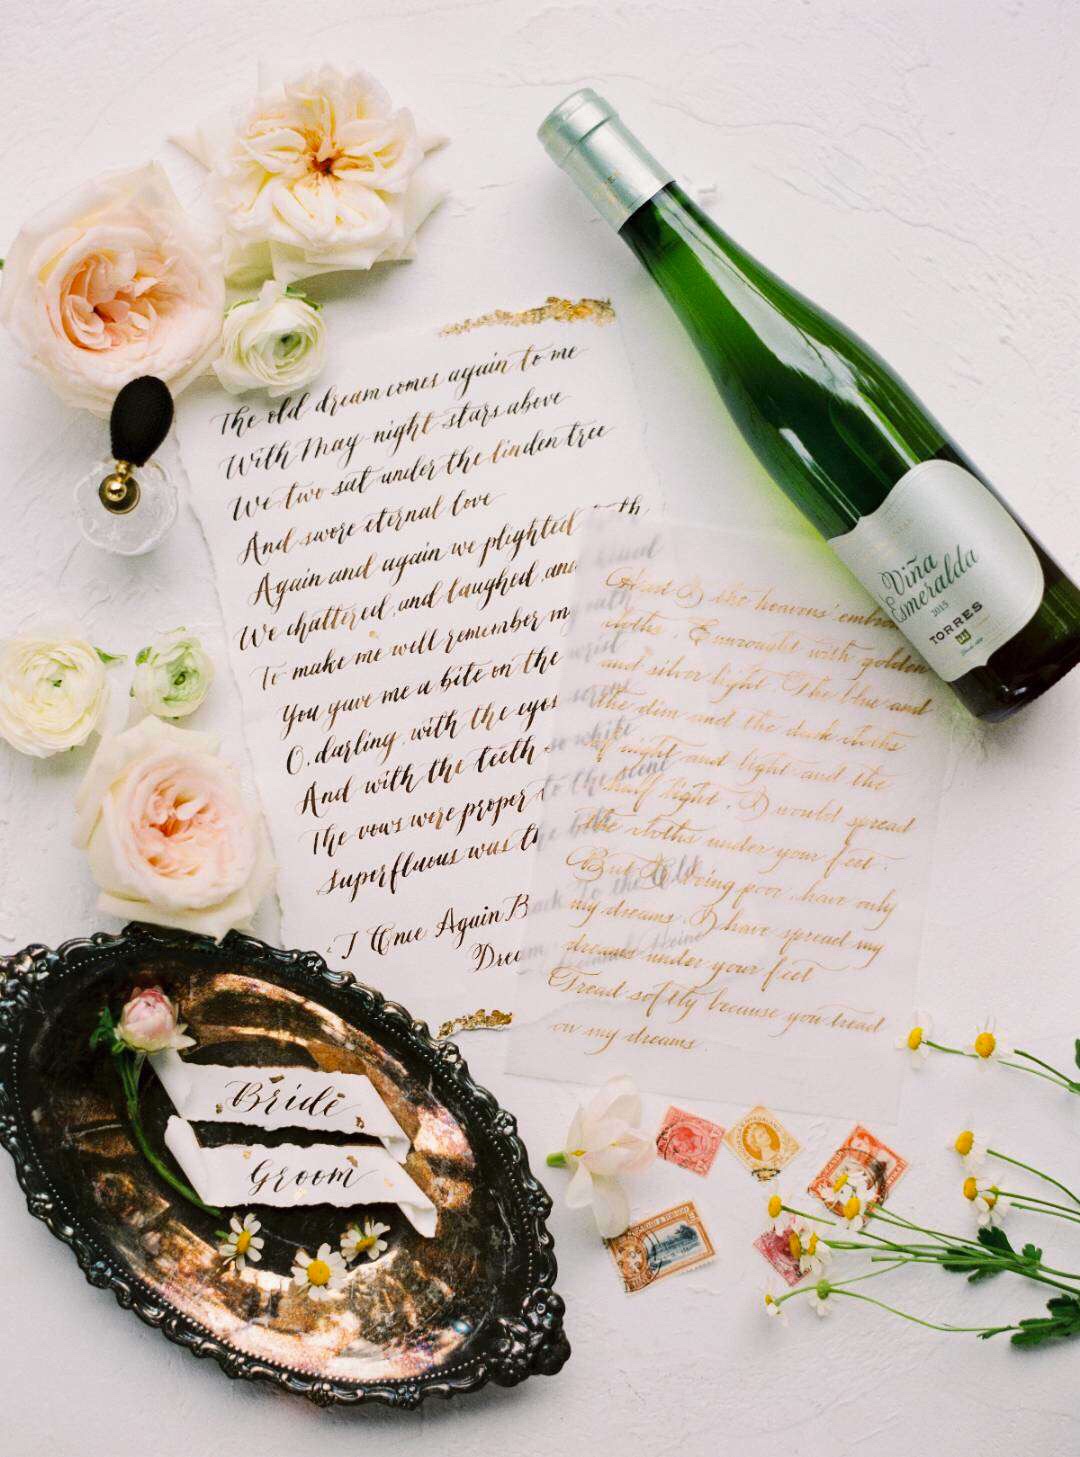 The old dream comes again to me
With May-night stars above
We two sat under the linden tree
And swore eternal love
Again and again we plighted
We chattered, and laughed, and
To make me well remember my oath
You gave me a bite on the wrist
O, darling, with the eyes serene
And with the teeth so white
The vows were proper to the scene
Superfluous was the bite
I Once Again Back To the Old
Heine
Had I the heavens'
cloths, Enwrought with golden
and silver light, The blue and
the dim and the dark cloths
of night and light and the
half light, I would spread
the cloths under your feet:
But I, being poor, have only
my dreams. I have spread my
dreams under your feet
Tread softly because you tread
on my dreams.
Viña
Esmeralda
2015
TORRES
Bride
Groom